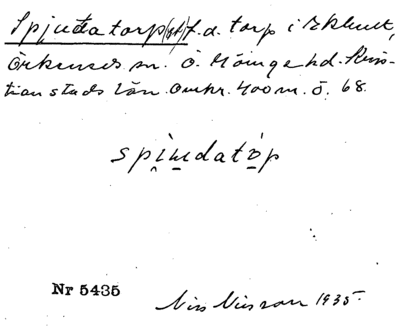 Spjudatorp(et) f.d. torp i Ekhult,
Örkeneds sn. Ö. Göinge hd. Kris-
tianstads län. Omkr. 400 m. ö. 68.
spi̯u̱datò̱p
Nr 5435
Nils Nilsson 1935